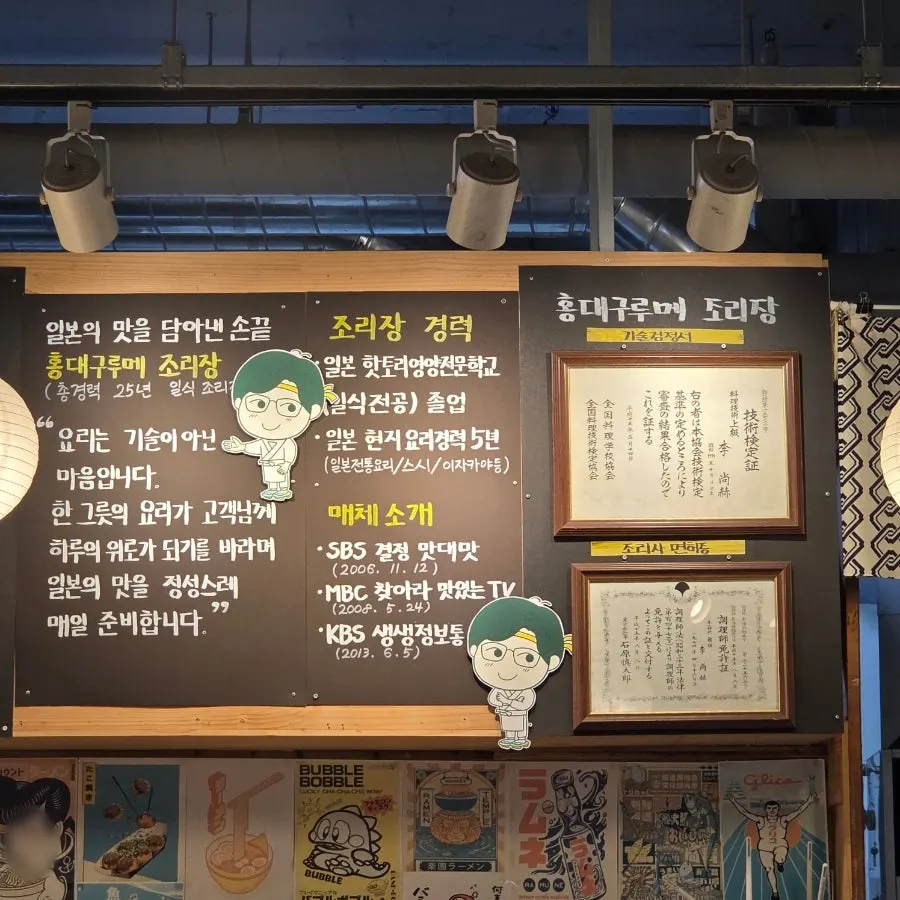 일본의 맛을 담아낸 손끝
홍대구루메 조리장
(총경력 25년 일식 조리
“요리는 기술이 아닌
마음입니다.
한 그릇의 요리가 고객님께
하루의 위로가 되기를 바라며
일본의 맛을 정성스레
매일 준비합니다.”
조리장 경력
일본 핫토리영양전문학교
(일식전공) 졸업
·일본 현지 요리경력 5년
(일본전통요리/스시/이자카야등)
매체 소개
·SBS 결정 맛대맛
(2006. 11. 12)
·MBC 찾아라 맛있는 TV
(2008. 5. 24)
·KBS 생생정보통
(2013. 6. 5)
홍대구루메 조리장
기술검정서
技術検定証
料理技術上級
李 尚赫
右の者は本協会技術検定
基準の定めるところにより
審査の結果合格したので
これを証する
全国料理学校協会
全国料理技術検定協会
조리사 면허증
調理師免許証
李 尚赫
免許を与える
よってこの証を交付する
石原慎太郎
たこ焼き
BUBBLE
BOBBLE
BUBBLE
RAMEN
楽園ラーメン
ラムネ
RAMUNE
Glico